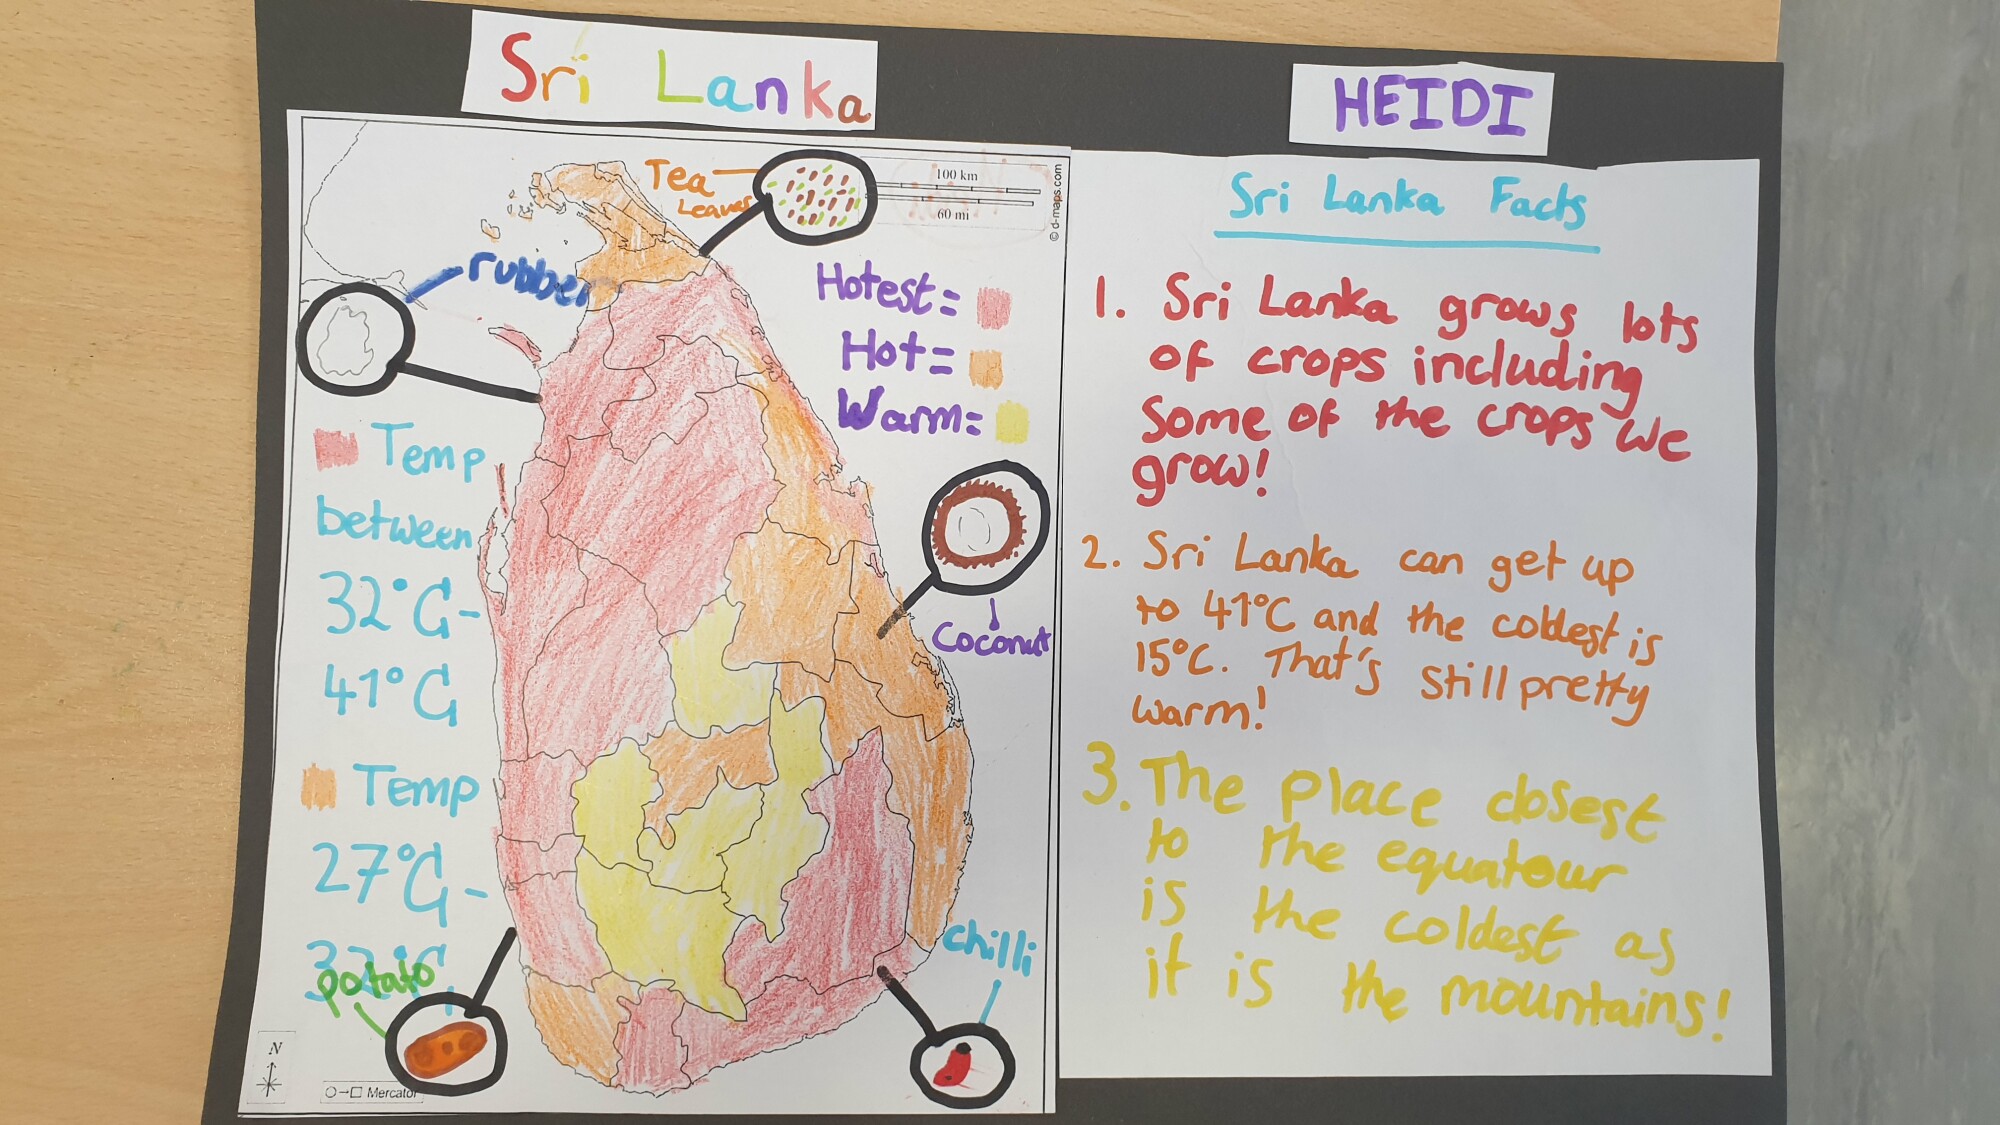 Sri Lanka
HEIDI
Tea
Leaves
100 km
60 mi
© d-maps.com
rubber
Hotest=
Hot=
Warm=
Temp
between
32°C-
41°C
Coconut
Temp
27°C-
32°C
potato
chilli
N
Mercator
Sri Lanka Facts
1. Sri Lanka grows lots
of crops including
some of the crops we
grow!
2. Sri Lanka can get up
to 41°C and the coldest is
15°C. That's still pretty
warm!
3. The place closest
to the equatour
is the coldest as
it is the mountains!